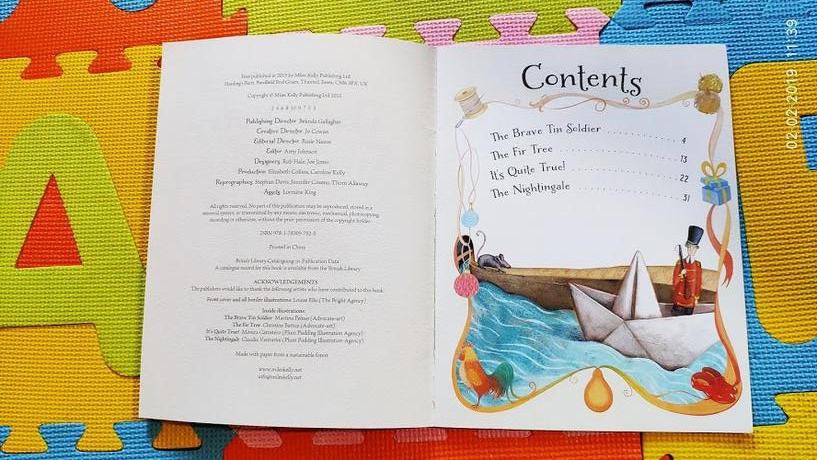 First published in 2013 by Miles Kelly Publishing Ltd
Harding's Barn, Bardfield End Green, Thaxted, Essex, CM6 3PX, UK
Copyright © Miles Kelly Publishing Ltd 2013
Publishing Director Belinda Gallagher
Creative Director Jo Cowan
Editorial Director Rosie Neave
Editor Amy Johnson
Designers Rob Hale, Joe Jones
Production Elizabeth Collins, Caroline Kelly
Reprographics Stephan Davis, Jennifer Cozens, Thom Allaway
Assets Lorraine King
All rights reserved. No part of this publication may be reproduced, stored in a
retrieval system, or transmitted by any means, electronic, mechanical, photocopying,
recording or otherwise, without the prior permission of the copyright holder.
Printed in China
British Library Cataloguing-in-Publication Data
A catalogue record for this book is available from the British Library
ACKNOWLEDGEMENTS
The publishers would like to thank the following artists who have contributed to this book:
Front cover and all border illustrations: Louise Ellis (The Bright Agency)
Inside illustrations:
The Brave Tin Soldier (Advocate-art)
The Fir Tree (Advocate-art)
It's Quite True! (Plum Pudding Illustration Agency)
The Nightingale (Plum Pudding Illustration Agency)
Made with paper from a sustainable forest
www.mileskelly.net
info@mileskelly.net
Contents
The Brave Tin Soldier .......... 4
The Fir Tree .......... 13
It's Quite True! .......... 22
The Nightingale .......... 31
02-02-2019 11:39